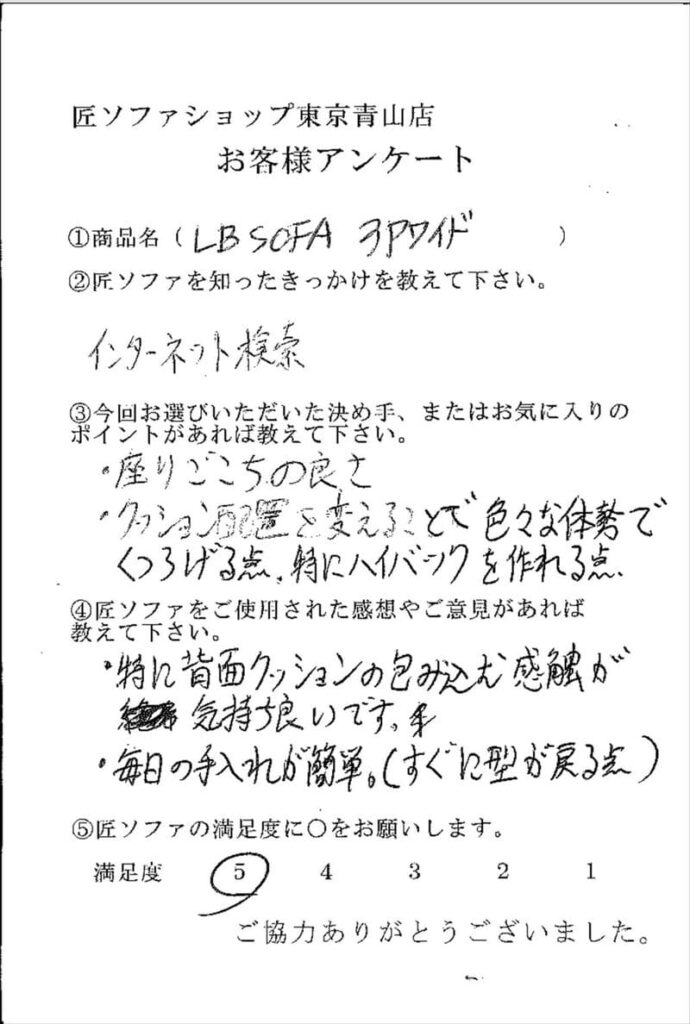 匠ソファショップ東京青山店
お客様アンケート
①商品名（ LB SOFA 3Pワイド ）
②匠ソファを知ったきっかけを教えて下さい。
インターネット検索
③今回お選びいただいた決め手、またはお気に入りの
ポイントがあれば教えて下さい。
・座りごこちの良さ
・クッション配置を変えることで色々な体勢で
くつろげる点、特にハイバックを作れる点
④匠ソファをご使用された感想やご意見があれば
教えて下さい。
・特に背面クッションの包み込む感触が
気持ち良いです。
・毎日の手入れが簡単。(すぐに型が戻る点)
⑤匠ソファの満足度に○をお願いします。
満足度 5 4 3 2 1
ご協力ありがとうございました。